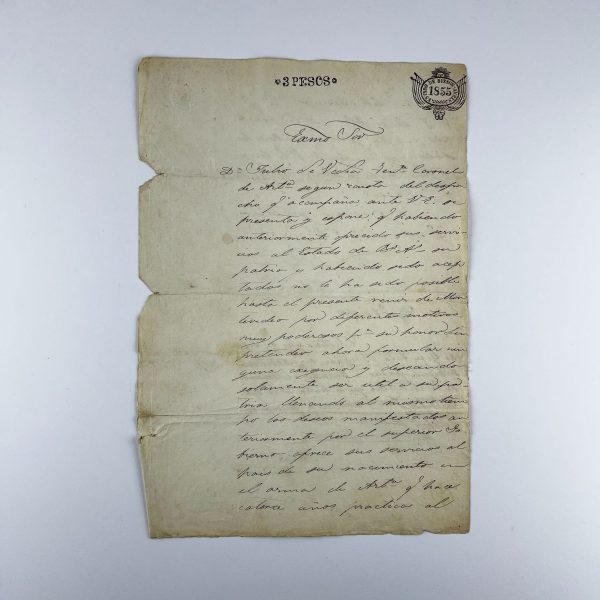 3 PESOS
1855
Exmo Sor
Dn Julio de Vedia Tente Coronel
de Arta segun consta del despa
cho q' acompaña ante V.E. se
presenta y espone q' habiendo
anteriormente ofrecido sus servi-
cios al Estado de Bs As su
patria y habiendo sido acep
tados, no le ha sido posible
hasta el presente venir de Mon
tevideo por diferentes motivos
muy poderosos pa su honor. Sin
pretender ahora formular nin
guna exigencia y deseando
solamente ser util a su pa-
tria llenando al mismo tiem
po los deseos manifestados an
teriormente por el superior Go
bierno, ofrece sus servicios al
pais de su nacimiento en
el arma de Arta q' hace
catorce años practica al